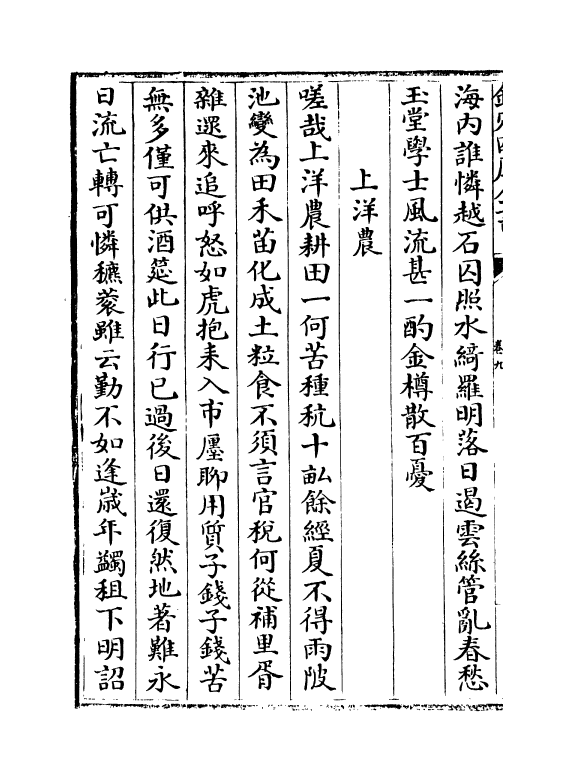 卷九
海内誰憐越石囚照水綺羅明落日遏雲絲管亂春愁
玉堂學士風流甚一酌金樽散百憂
上洋農
嗟哉上洋農耕田一何苦種秔十畝餘經夏不得雨陂
池變為田禾苗化成土粒食不須言官稅何從補里胥
雜遝來追呼怒如虎抱耒入市廛聊用質子錢子錢苦
無多僅可供酒筵此日行已過後日還復然地著難永
日流亡轉可憐穮蔉雖云勤不如逢歲年蠲租下明詔